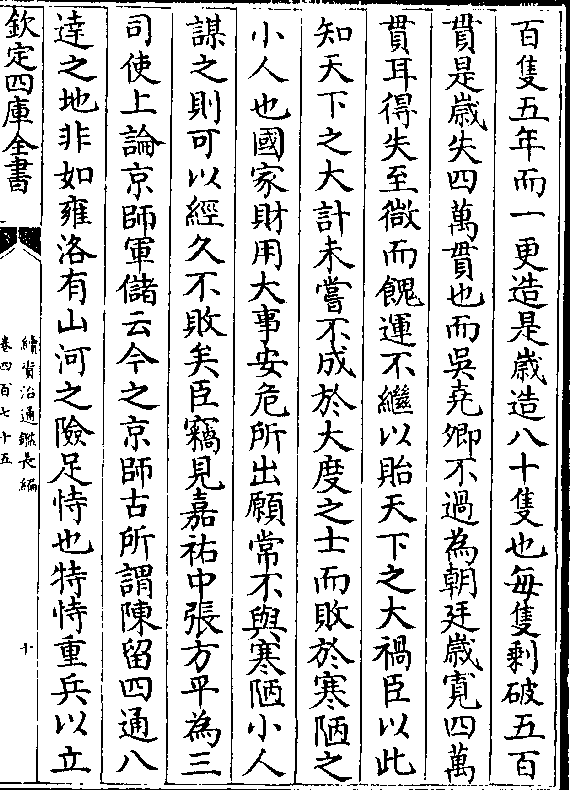 百隻五年而一更造是歲造八十隻也每隻剩破五百
貫是歲失四萬貫也而吳堯卿不過為朝廷歲寛四萬
貫耳得失至微而餽運不繼以貽天下之大禍臣以此
知天下之大計未嘗不成於大度之士而敗於寒陋之
小人也國家財用大事安危所出願常不與寒陋小人
謀之則可以經久不敗矣臣竊見嘉祐中張方平為三
司使上論京師軍儲云今之京師古所謂陳留四通八
達之地非如雍洛有山河之險足恃也特恃重兵以立
欽定四庫全書
續資治通鑑長編
卷四百七十五
十